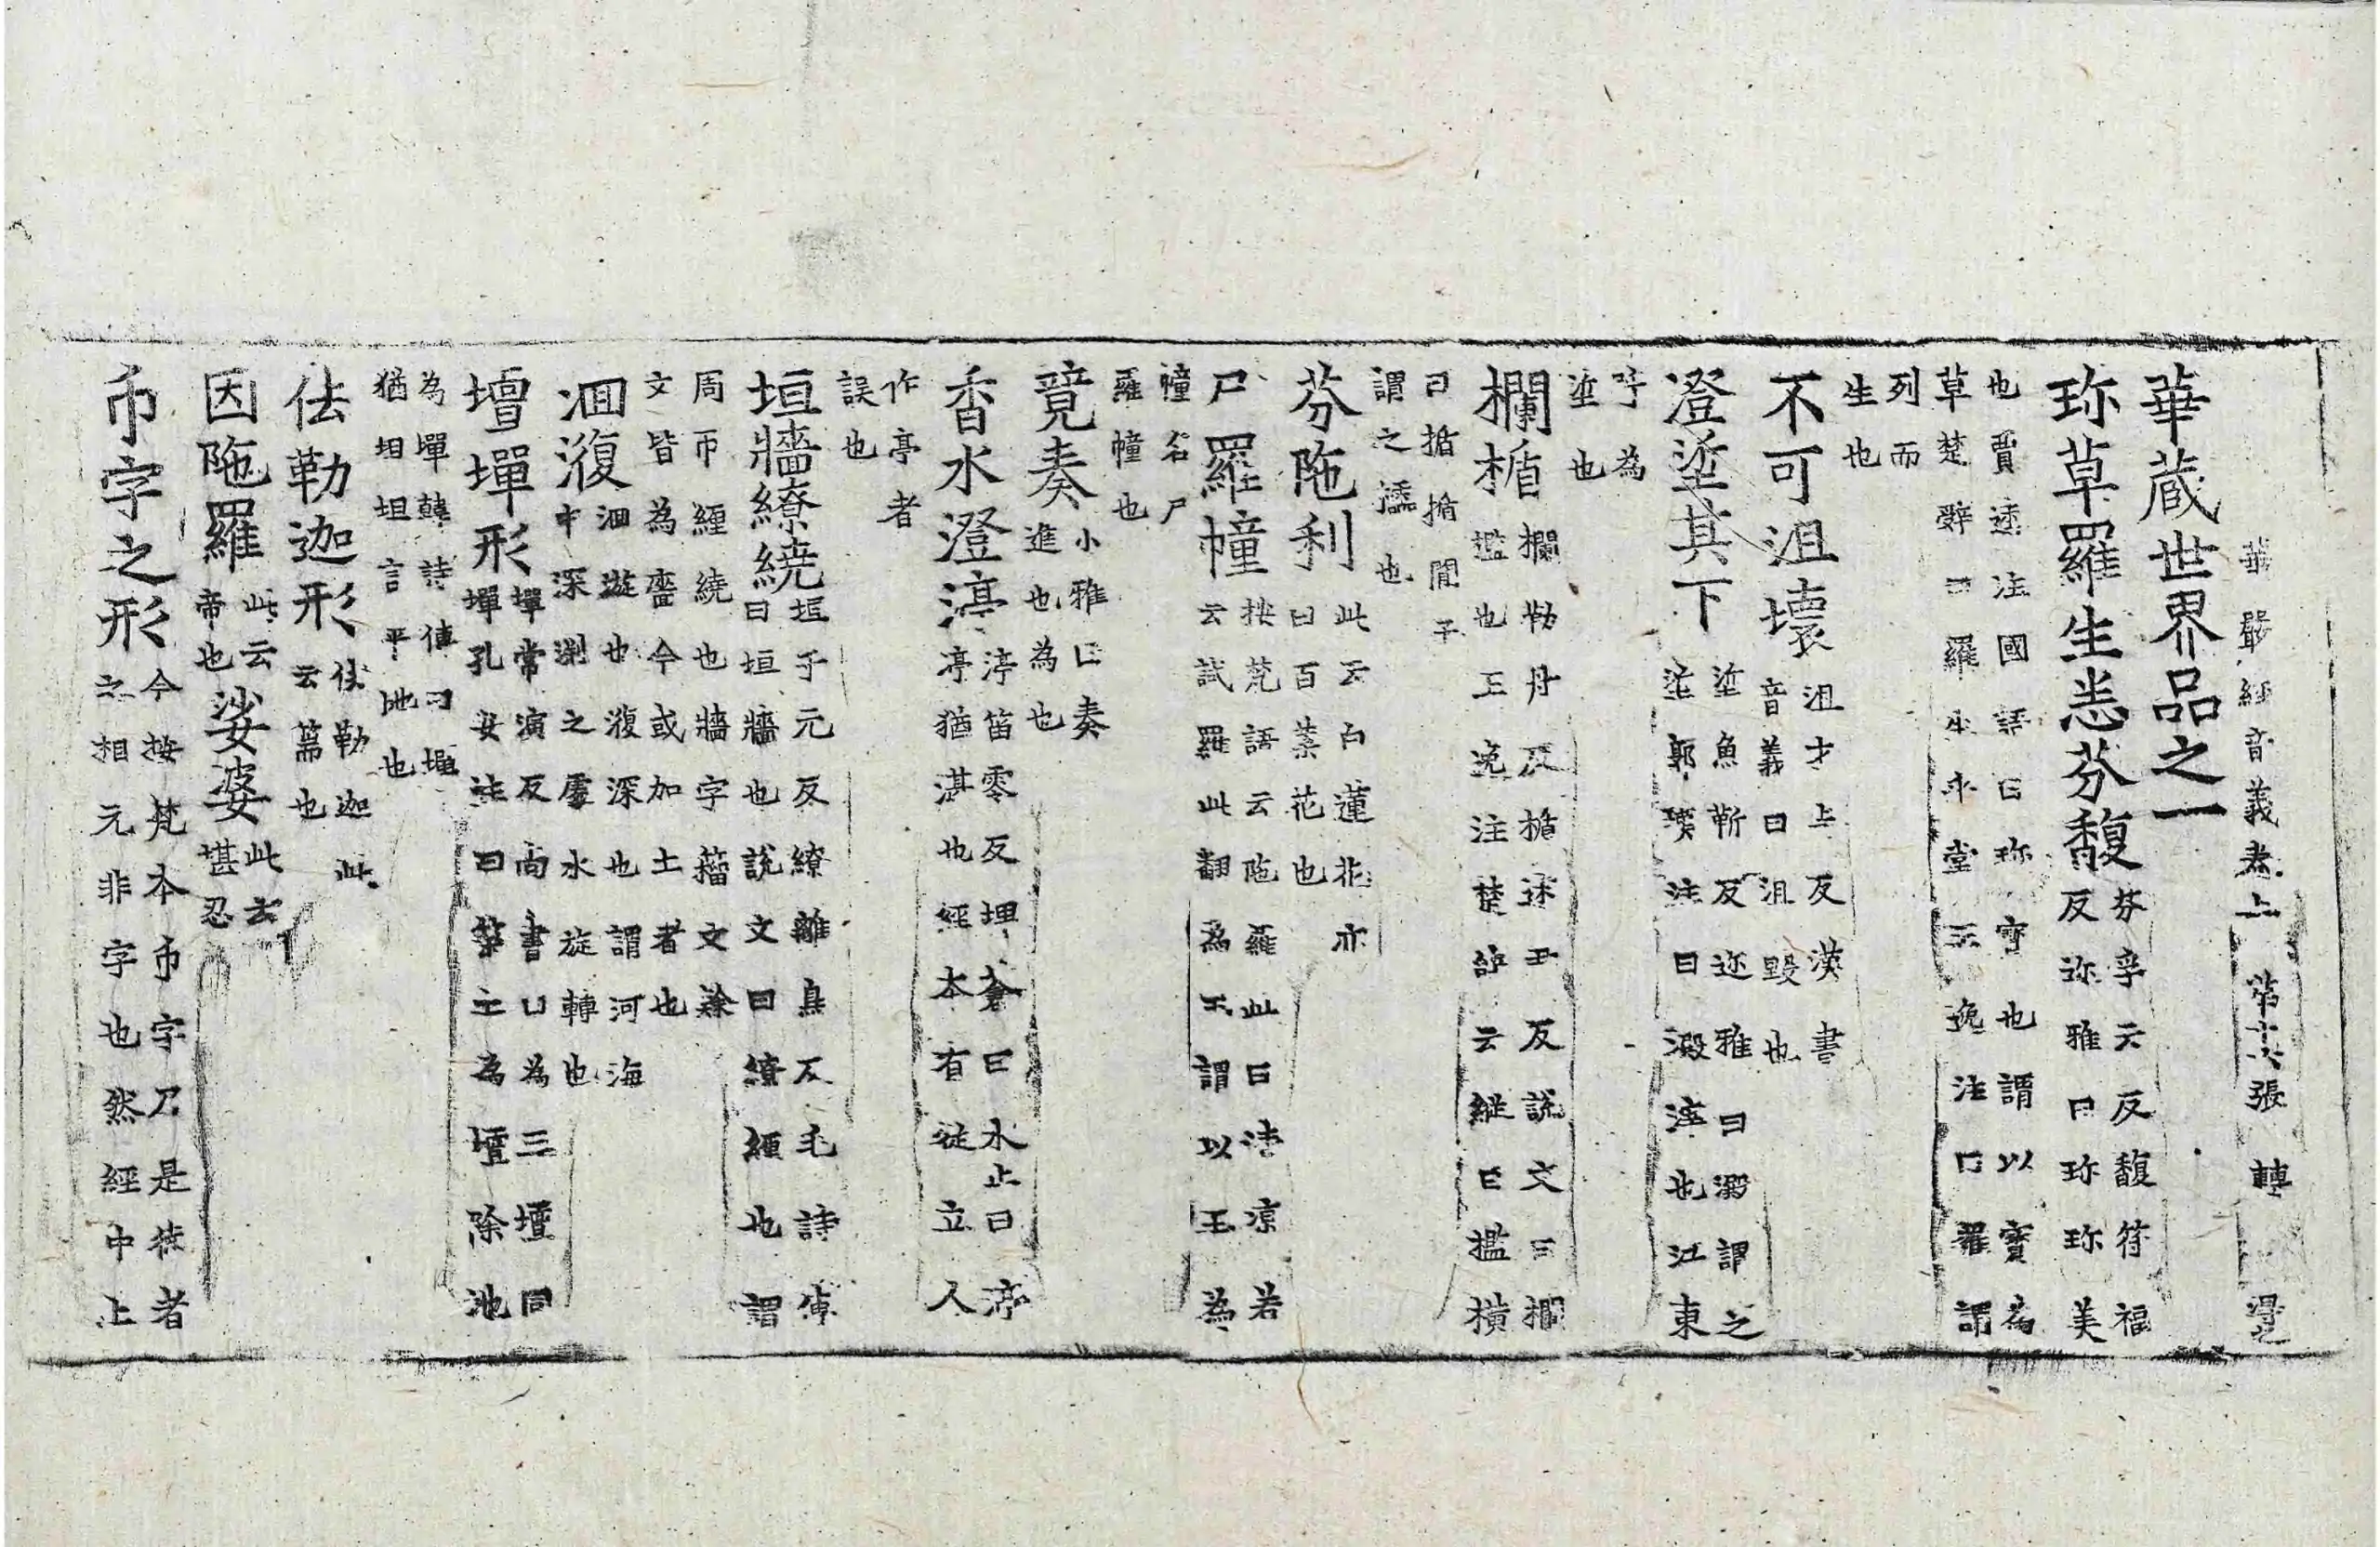 華嚴經音義卷上 第十六張 轉
華藏世界品之一
珎草羅生悉芬馥 芬孚云反馥符福
反迩雅曰珎珎美
也賈逵注國語曰珎寶也謂以寶為
草楚辤曰羅生乎堂王逸注曰羅謂
列而
生也
不可沮壞 沮才上反漢書
音義曰沮毀也
澄垽其下 垽魚靳反迩雅曰澱謂之
垽郭璞注曰澱滓也江東
呼為
垽也
欄楯 欄勒丹反楯述尹反說文曰欄
檻也王逸注楚辤云縱曰檻橫
曰楯楯間子
謂之櫺也
芬陁利 此云白蓮花亦
曰百葉花也
尸羅幢 按梵語云陁羅此曰清涼若
云試羅此翻為玉謂以玉為
幢名尸
羅幢也
竟奏 小雅曰奏
進也為也
香水澄渟 渟笛零反埤蒼曰水止曰渟
渟猶湛也經本有從立人
作亭者
誤也
垣牆繚繞 垣于元反繚離鳥反毛詩傳
曰垣牆也說文曰繚纏也謂
周帀纏繞也牆字籀文篆
文皆為嗇今或加土者也
洄澓 洄游也澓深也謂河海
中深淵之處水旋轉也
壇墠形 墠常演反尚書曰為三壇同
墠孔安注曰築土為壇除地
為墠韓詩傳曰墠
猶坦坦言平地也
佉勒迦形 佉勒迦此
云篅也
因陁羅 此云
帝也 娑婆 此云
堪忍
帀字之形 今按梵本帀字乃是德者
之相元非字也然經中上